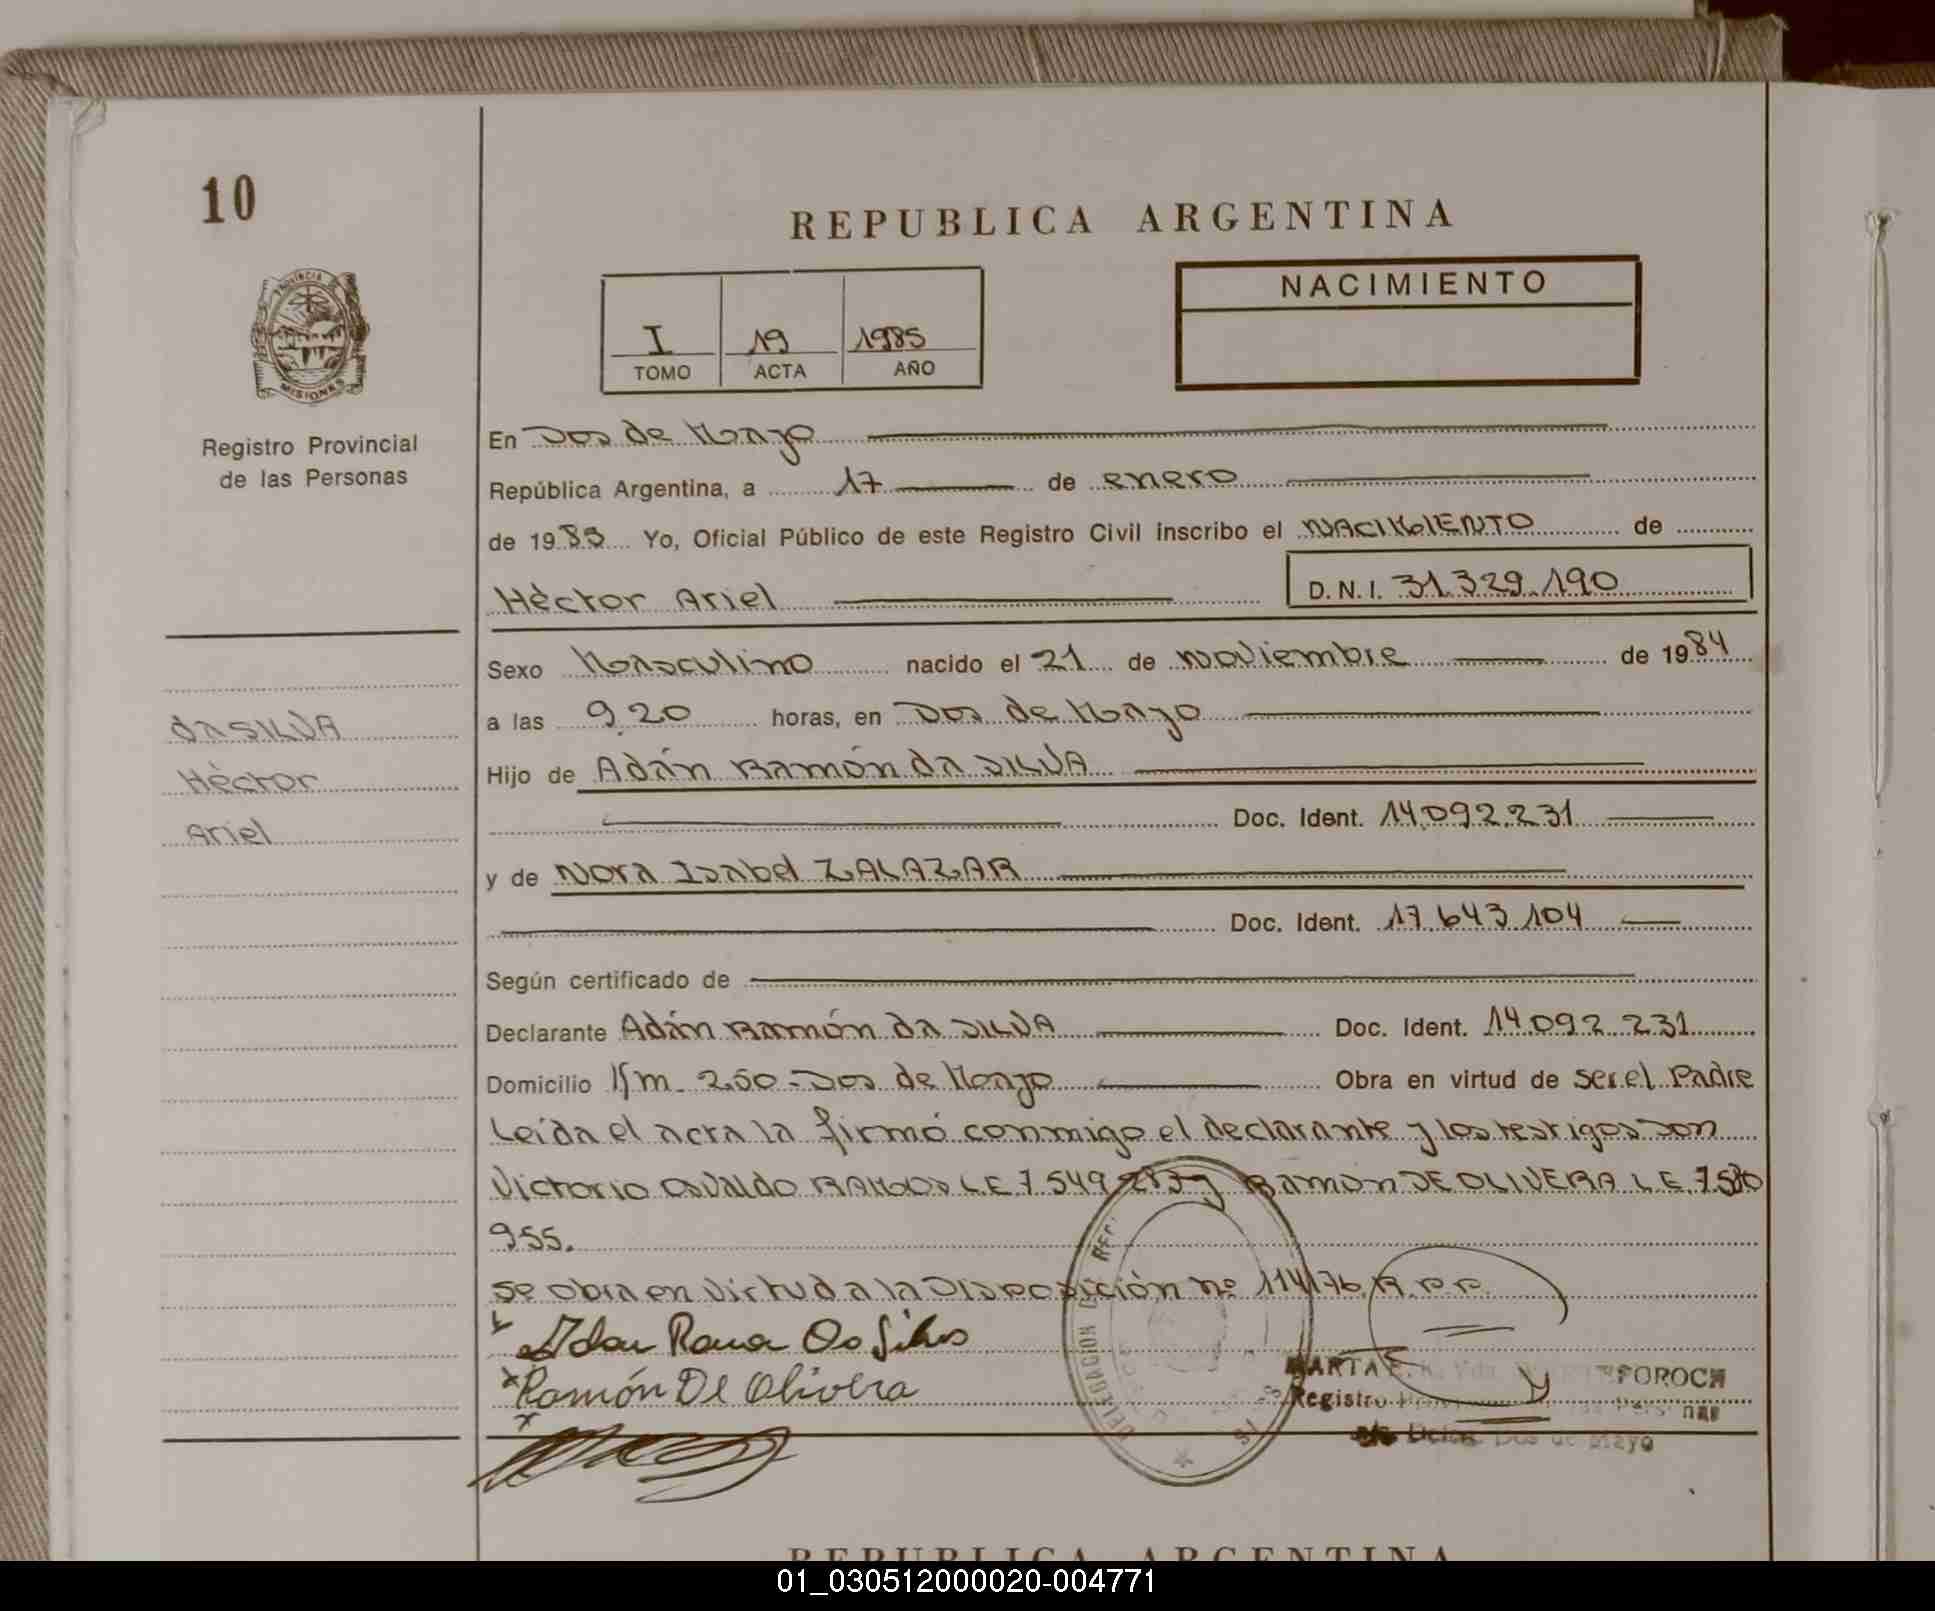 10
REPUBLICA ARGENTINA
PROVINCIA DE
MISIONES
Registro Provincial
de las Personas
I 19 1985
TOMO ACTA AÑO
NACIMIENTO
En Dos de Mayo
República Argentina, a 17 de enero
de 1985 Yo, Oficial Público de este Registro Civil inscribo el NACIMIENTO de
Héctor Ariel D.N.I. 31.329.190
Sexo Masculino nacido el 21 de noviembre de 1984
a las 9,20 horas, en Dos de Mayo
Hijo de Adán Ramón da SILVA
Doc. Ident. 14.092.231
y de Nora Isabel ZALAZAR
Doc. Ident. 17.643.104
Según certificado de
Declarante Adán Ramón da SILVA Doc. Ident. 14.092.231
Domicilio Km. 250 - Dos de Mayo Obra en virtud de ser el Padre
Leída el acta la firmó conmigo el declarante y los testigos son
Victorio Osvaldo RAMOS L.E. 7.549 y Ramon DE OLIVERA L.E. 7.580
955.
Se obra en virtud a la Disposición nº 114/76 R.P.P.
Ramón De Olivera
da SILVA
Héctor
Ariel
DELEGACION
MARTA
Registro
Deleg. Dos de Mayo
REPUBLICA ARGENTINA
01_030512000020-004771